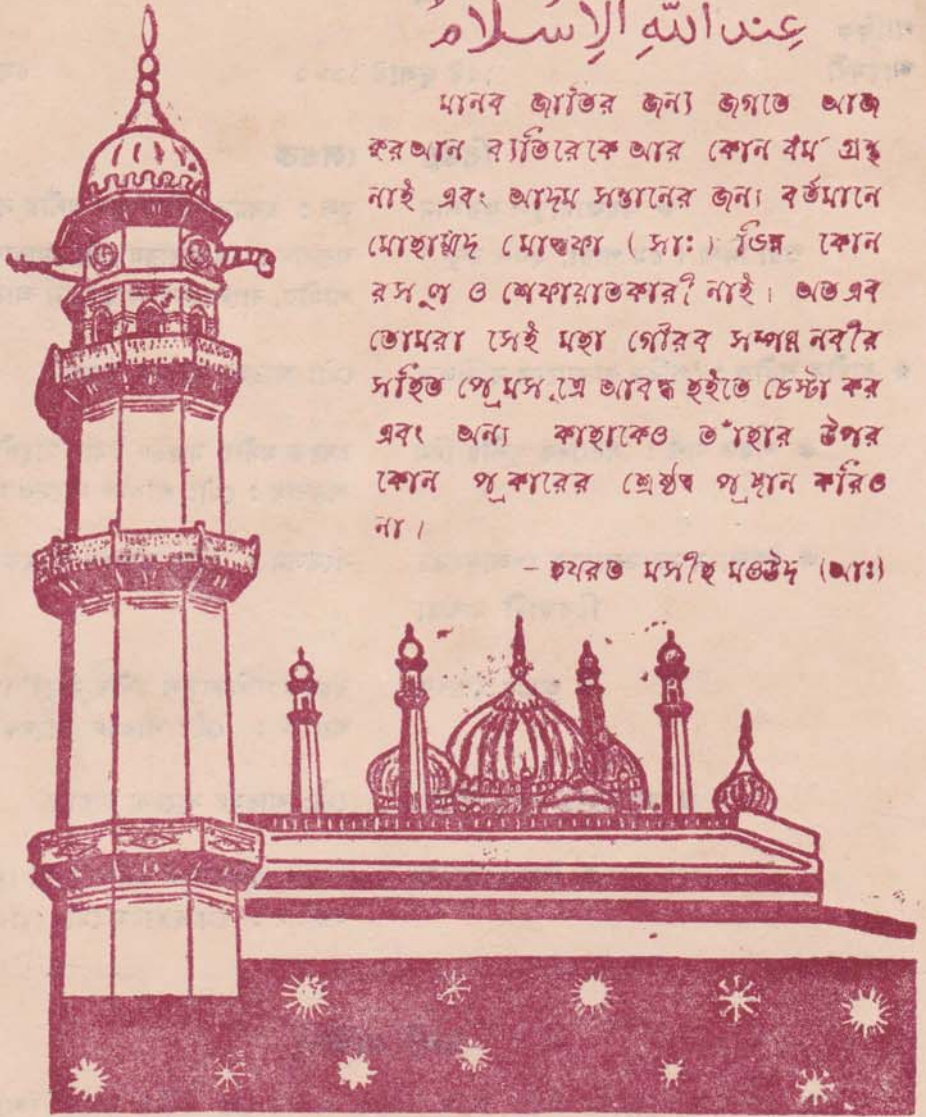 عند الله الإسلام
মানব জাতির জন্য জগতে আজ
কুরআন ব্যতিরেকে আর কোন ধর্ম গ্রন্থ
নাই এবং আদম সন্তানের জন্য বর্তমানে
মোহাম্মদ মোস্তফা (সাঃ) ভিন্ন কোন
রসূল ও শেফায়াতকারী নাই। অতএব
তোমরা সেই মহা গৌরব সম্পন্ন নবীর
সহিত প্রেমসূত্রে আবদ্ধ হইতে চেস্টা কর
এবং অন্য কাহাকেও তাঁহার উপর
কোন প্রকারের শ্রেষ্ঠত্ব প্রদান করিও
না।
- হযরত মসীহ মওউদ (আঃ)